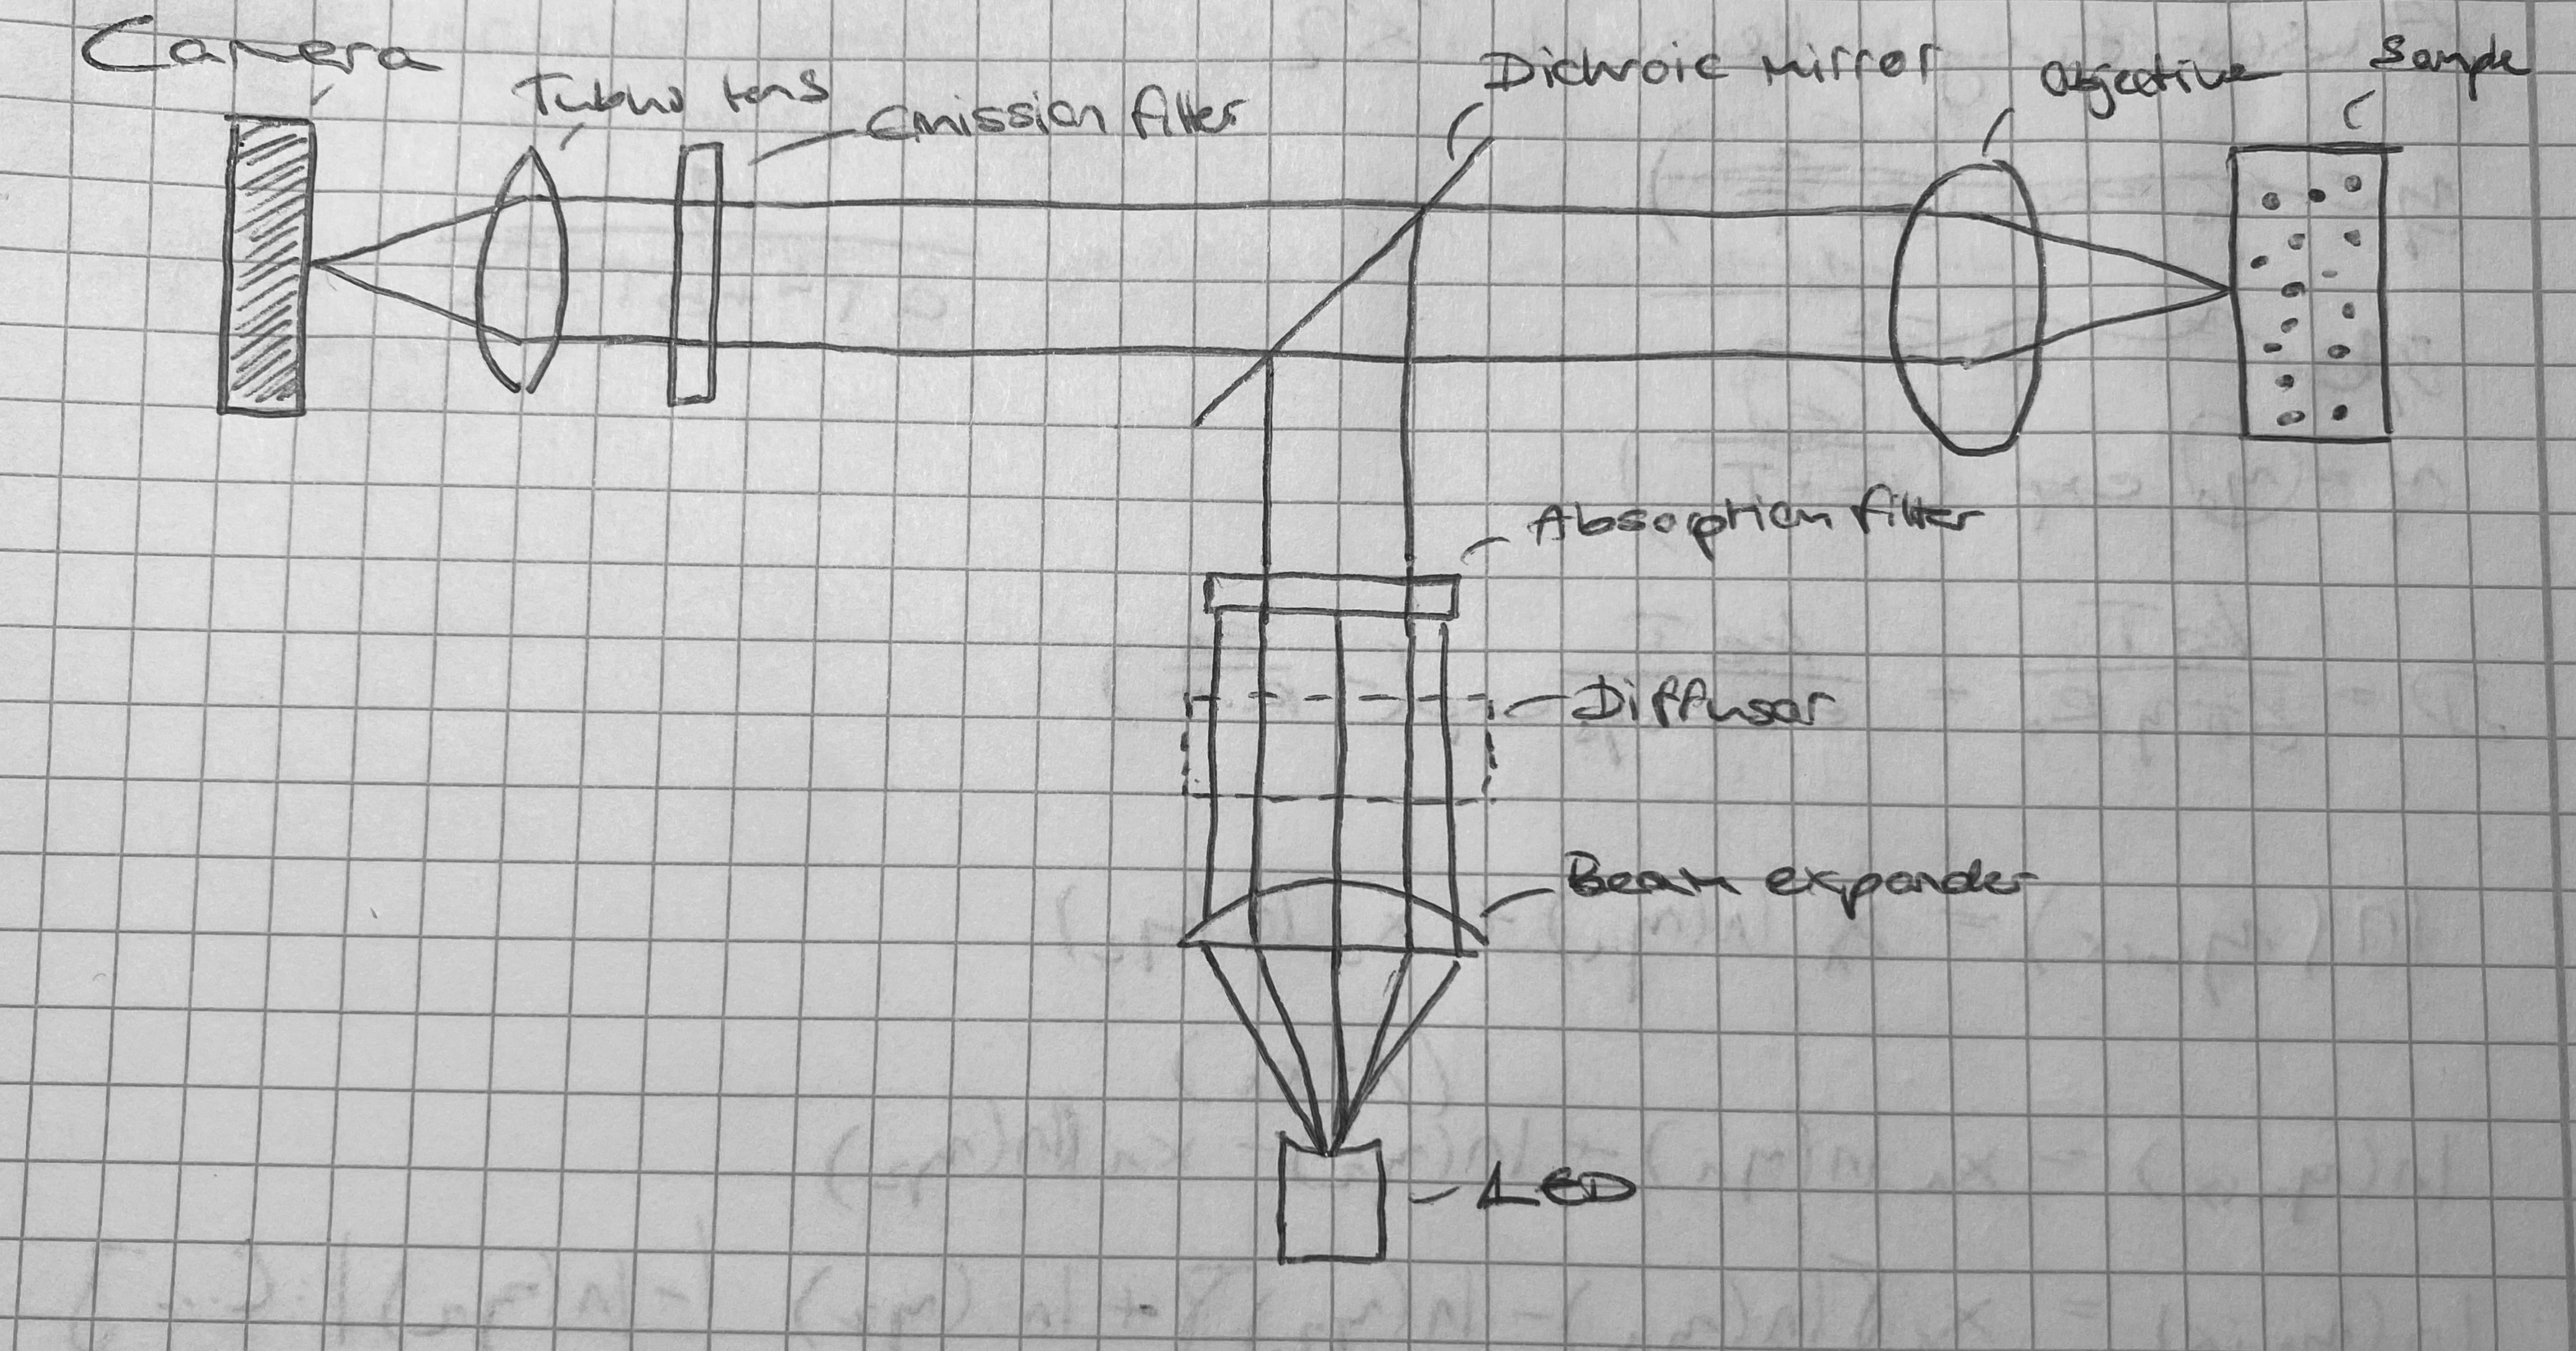 Camera
lens
Emission filter
Dichroic mirror
Objective
Sample
Absorption filter
Diffusor
Beam expander
LED